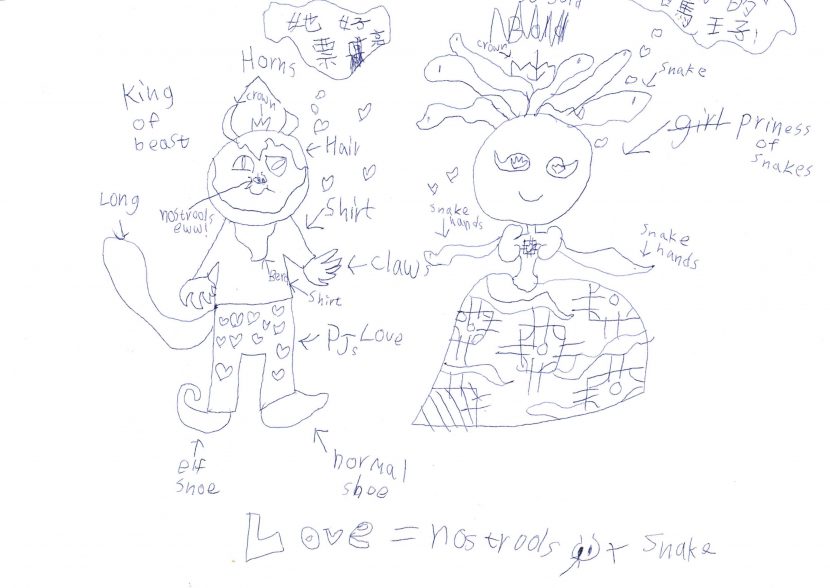 她好
票亮
馬 的
王子!
Horns
crown
King
of
beast
Hair
Long
nostrools
eww!
Shirt
claws
Shirt
PJs Love
elf
shoe
normal
shoe
crown
snake
girl priness
of
snakes
snake
hands
snake
hands
Love = nostrools + Snake